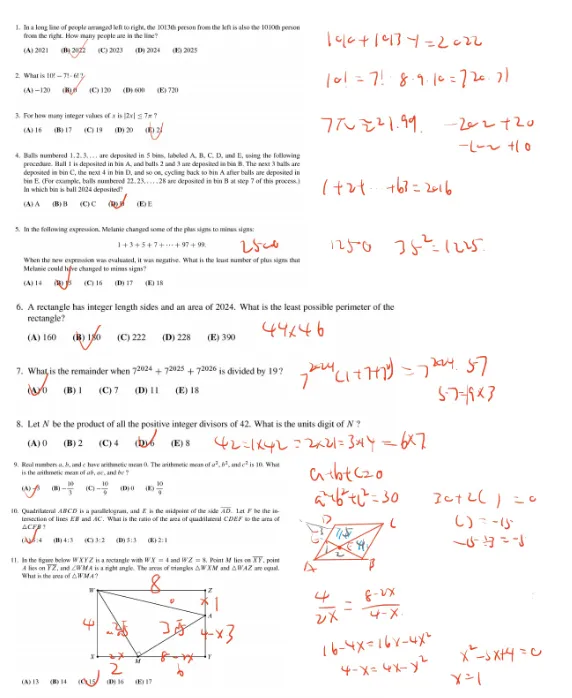 1. In a long line of people arranged left to right, the 1013th person from the left is also the 1010th person
from the right. How many people are in the line?
(A) 2021 (B) 2022 (C) 2023 (D) 2024 (E) 2025
1010+1013-1=2022
2. What is 10! − 7! · 6!?
(A) −120 (B) 0 (C) 120 (D) 600 (E) 720
10! = 7! · 8·9·10 = 720·7!
3. For how many integer values of x is |2x| ≤ 7π?
(A) 16 (B) 17 (C) 19 (D) 20 (E) 21
7π≈21.99
4. Balls numbered 1, 2, 3, … are deposited in 5 bins, labeled A, B, C, D, and E, using the following
procedure. Ball 1 is deposited in bin A, and balls 2 and 3 are deposited in bin B. The next 3 balls are
deposited in bin C, the next 4 in bin D, and so on, cycling back to bin A after balls are deposited in
bin E. (For example, balls numbered 22, 23, … , 28 are deposited in bin B at step 7 of this process.)
In which bin is ball 2024 deposited?
(A) A (B) B (C) C (D) D (E) E
1+2+ ··· +63=2016
5. In the following expression, Melanie changed some of the plus signs to minus signs:
1 + 3 + 5 + 7 + ··· + 97 + 99.
2500 1250 35²=1225
When the new expression was evaluated, it was negative. What is the least number of plus signs that
Melanie could have changed to minus signs?
(A) 14 (B) 15 (C) 16 (D) 17 (E) 18
6. A rectangle has integer length sides and an area of 2024. What is the least possible perimeter of the
rectangle?
(A) 160 (B) 180 (C) 222 (D) 228 (E) 390
44×46
7. What is the remainder when 7²⁰²⁴ + 7²⁰²⁵ + 7²⁰²⁶ is divided by 19?
(A) 0 (B) 1 (C) 7 (D) 11 (E) 18
7²⁰²⁴(1+7+7²) = 7²⁰²⁴·57
57=19×3
8. Let N be the product of all the positive integer divisors of 42. What is the units digit of N?
(A) 0 (B) 2 (C) 4 (D) 6 (E) 8
42=1×42=2×21=3×14=6×7
9. Real numbers a, b, and c have arithmetic mean 0. The arithmetic mean of a², b², and c² is 10. What
is the arithmetic mean of ab, ac, and bc?
(A) −5 (B) −10/3 (C) −10/9 (D) 0 (E) 10/9
a+b+c=0
a²+b²+c²=30
30+2( )=0
( )=-15
-15÷3=-5
10. Quadrilateral ABCD is a parallelogram, and E is the midpoint of the side AD. Let F be the in-
tersection of lines EB and AC. What is the ratio of the area of quadrilateral CDEF to the area of
△CFB?
(A) 5:4 (B) 4:3 (C) 3:2 (D) 5:3 (E) 2:1
D C
A B
11. In the figure below WXYZ is a rectangle with WX = 4 and WZ = 8. Point M lies on XY, point
A lies on YZ, and ∠WMA is a right angle. The areas of triangles △WXM and △WAZ are equal.
What is the area of △WMA?
8
W Z
x 1
A
4
4-x 3
X M Y
2x 8-2x
2 6
4/2x = 8-2x/4-x
16-4x=16x-4x²
4-x=4x-x²
x²-5x+4=0
x=1
(A) 13 (B) 14 (C) 15 (D) 16 (E) 17